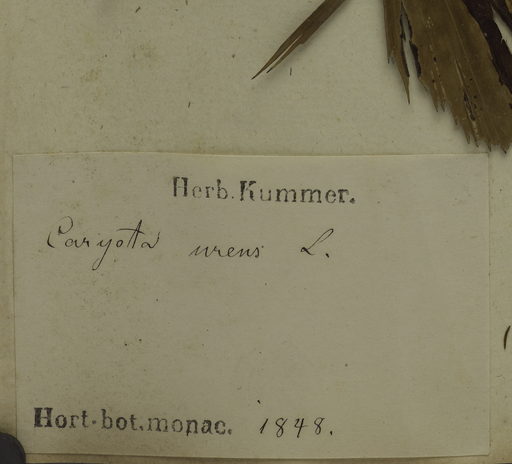 Herb. Kummer.
Caryota urens L.
Hort. bot. monac. 1848.